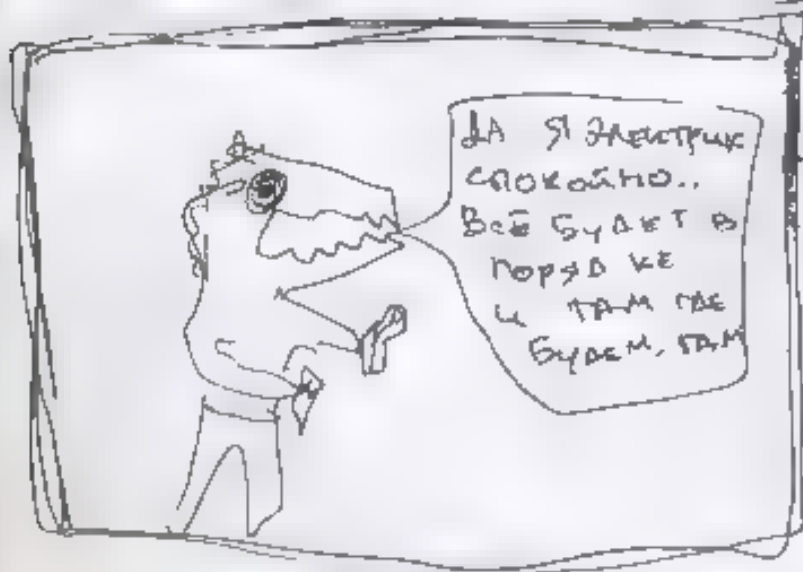 ДА Я ЭЛЕКТРИК
СПОКОЙНО..
ВСЁ БУДЕТ В
ПОРЯДКЕ
И ТАМ ГДЕ
БУДЕМ, ТАМ